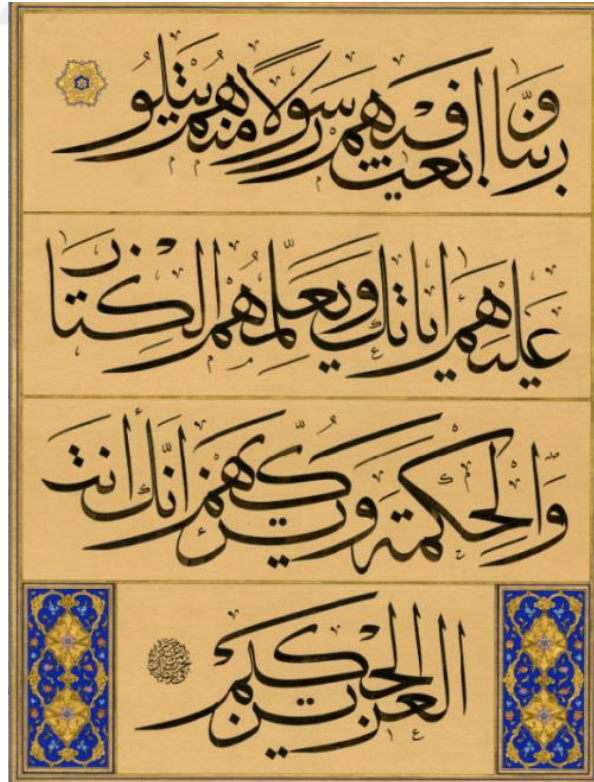 ربنا وابعث فيهم رسولا منهم يتلو
عليهم اياتك ويعلمهم الكتاب
والحكمة ويزكيهم انك انت
العزيز الحكيم